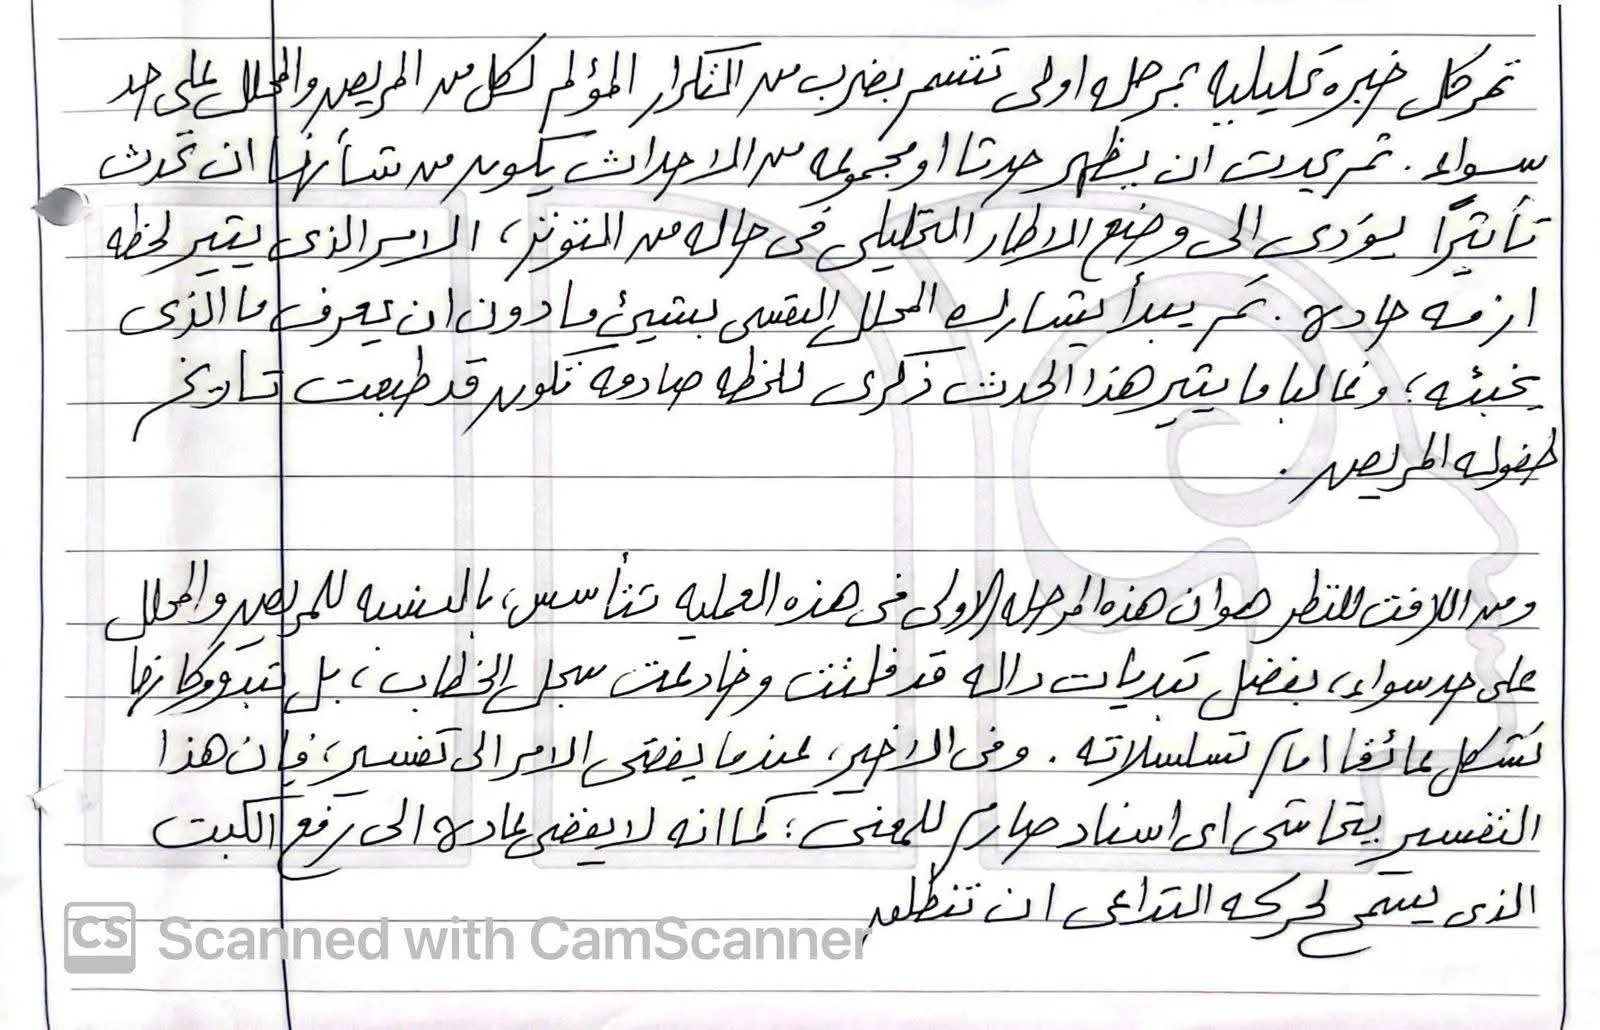 تمر كل خبرة تحليليه بمرحله اولى تتسم بضرب من التكرار المؤلم لكل من المريض والمحلل على حد
سواء. ثم يحدث ان يظهر حدثا او مجموعه من الاحداث يكون من شأنها ان تحدث
تأثيرًا يؤدى الى وضع الاطار التحليلى فى حاله من التوتر، الامر الذى يثير لحظه
ازمه حاده. ثم يبدأ يشارك المحلل النفسى بشيئ ما دون ان يعرف ما الذى
يخبئه؛ وغالبا ما يثير هذا الحدث ذكرى للحظه صادمه تكون قد طبعت تاريخ
طفوله المريض.
ومن اللافت للنظر هو ان هذه المرحله الاولى فى هذه العمليه تتأسس، بالنسبه للمريض والمحلل
على حد سواء، بفضل تبديات داله قد فلتت وخادعت سجل الخطاب، بل تبدو وكانها
تشكل عائقا امام تسلسلاته. وفى الاخير، عندما يفضى الامر الى تفسير، فإن هذا
التفسير يتحاشى اى اسناد صارم للمعنى؛ كما انه لا يفضى عاده الى رفع الكبت
الذى يسمح لحركه التداعى ان تنطلق
CS Scanned with CamScanner